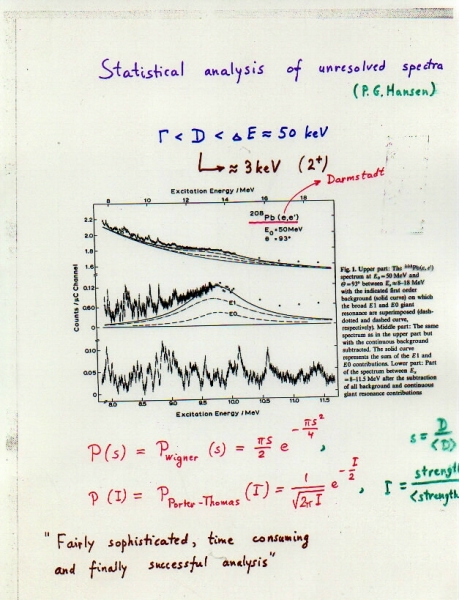 Statistical analysis of unresolved spectra
(P.G. Hansen)
Γ < D < ΔE ≈ 50 keV
↳ ≈ 3 keV (2⁺)
Darmstadt
Excitation Energy / MeV
8 10 12 14 16 18
²⁰⁸Pb (e,e')
E₀ = 50 MeV
Θ = 93°
2.2
2.0
1.8
1.6
0.12
0.60
0
E1
E0
0.10
0.05
0
Counts / µC Channel
8.0 9.0 10.0 11.0 11.5
Excitation Energy / MeV
Fig. 1. Upper part: The ²⁰⁸Pb(e,e')
spectrum at E₀=50 MeV and
Θ=93° between Eₓ=8–18 MeV
with the indicated first order
background (solid curve) on which
the broad E1 and E0 giant
resonance are superimposed (dash-
dotted and dashed curve,
respectively). Middle part: The same
spectrum as in the upper part but
with the continuous background
subtracted. The solid curve
represents the sum of the E1 and
E0 contributions. Lower part: Part
of the spectrum between Eₓ
=8–11.5 MeV after the subtraction
of all background and continuous
giant resonance contributions
P(s) = P Wigner (s) = πs/2 e^(-πs²/4) , s = D/<D>
P(I) = P Porter-Thomas (I) = 1/√(2πI) e^(-I/2) , I = strength/<strength
"Fairly sophisticated, time consuming
and finally successful analysis"